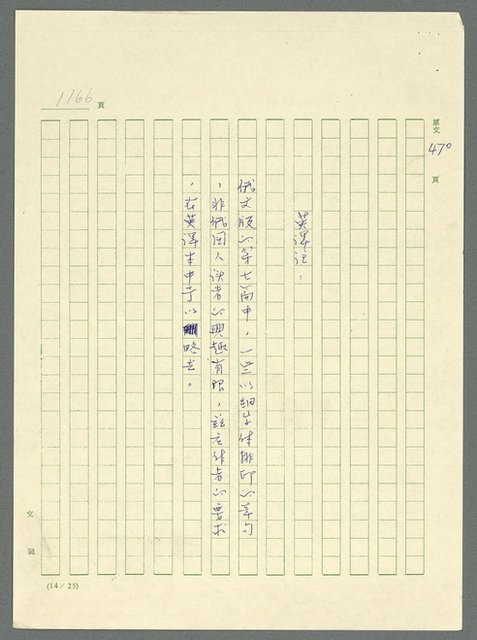 1166 頁
原文
470
頁
英譯記：
俄文版的第七篇中，一些以細字体排印的章句
，非俄國人讀者的興趣有限，茲应作者的要求
，在英譯本中予以略去。
文
(14/25)